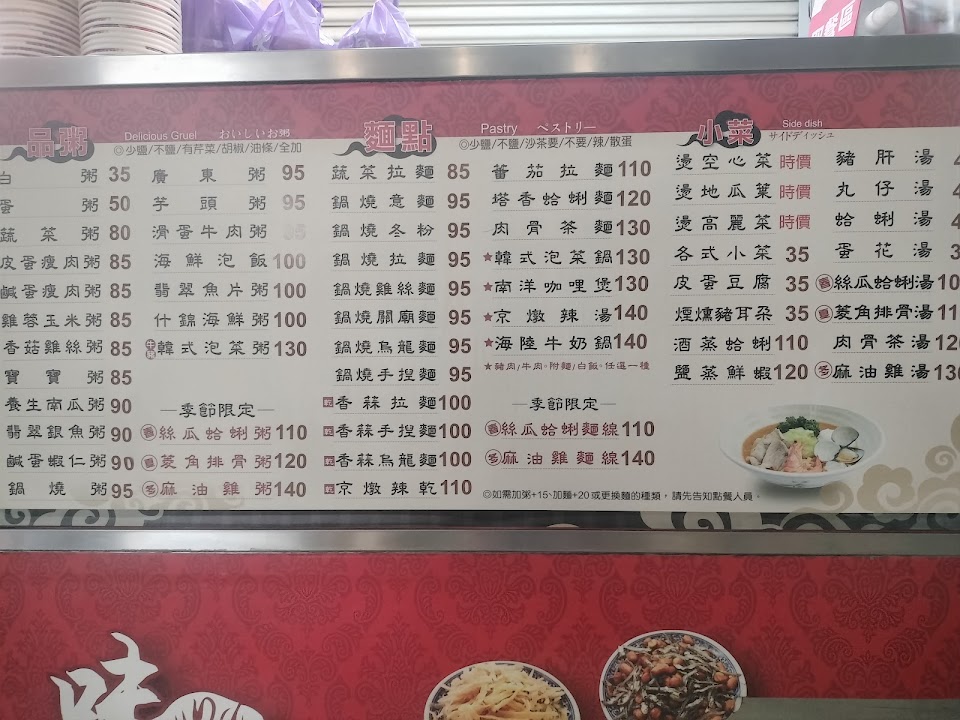 品粥
Delicious Gruel おいしいお粥
◎少鹽/不鹽/有芹菜/胡椒/油條/全加
白粥 35
蛋粥 50
蔬菜粥 80
皮蛋瘦肉粥 85
鹹蛋瘦肉粥 85
雞蓉玉米粥 85
香菇雞絲粥 85
寶寶粥 85
養生南瓜粥 90
翡翠銀魚粥 90
鹹蛋蝦仁粥 90
鍋燒粥 95
廣東粥 95
芋頭粥 95
滑蛋牛肉粥
海鮮泡飯 100
翡翠魚片粥 100
什錦海鮮粥 100
韓式泡菜粥 130
—季節限定—
絲瓜蛤蜊粥 110
菱角排骨粥 120
冬麻油雞粥 140
麵點
Pastry ペストリー
◎少鹽/不鹽/沙茶要/不要/辣/散蛋
蔬菜拉麵 85
鍋燒意麵 95
鍋燒冬粉 95
鍋燒拉麵 95
鍋燒雞絲麵 95
鍋燒關廟麵 95
鍋燒烏龍麵 95
鍋燒手捏麵 95
乾香蒜拉麵 100
乾香蒜手捏麵 100
乾香蒜烏龍麵 100
乾京燉辣乾 110
蕃茄拉麵 110
塔香蛤蜊麵 120
肉骨茶麵 130
★韓式泡菜鍋 130
★南洋咖哩煲 130
★京燉辣湯 140
★海陸牛奶鍋 140
★豬肉/牛肉。附麵/白飯。任選一種
—季節限定—
絲瓜蛤蜊麵線 110
冬麻油雞麵線 140
◎如需加粥+15、加麵+20或更換麵的種類，請先告知點餐人員。
小菜
Side dish
サイドディッシュ
燙空心菜 時價
燙地瓜葉 時價
燙高麗菜 時價
各式小菜 35
皮蛋豆腐 35
煙燻豬耳朵 35
酒蒸蛤蜊 110
鹽蒸鮮蝦 120
豬肝湯
丸仔湯
蛤蜊湯
蛋花湯
絲瓜蛤蜊湯
菱角排骨湯
肉骨茶湯
冬麻油雞湯 130
味